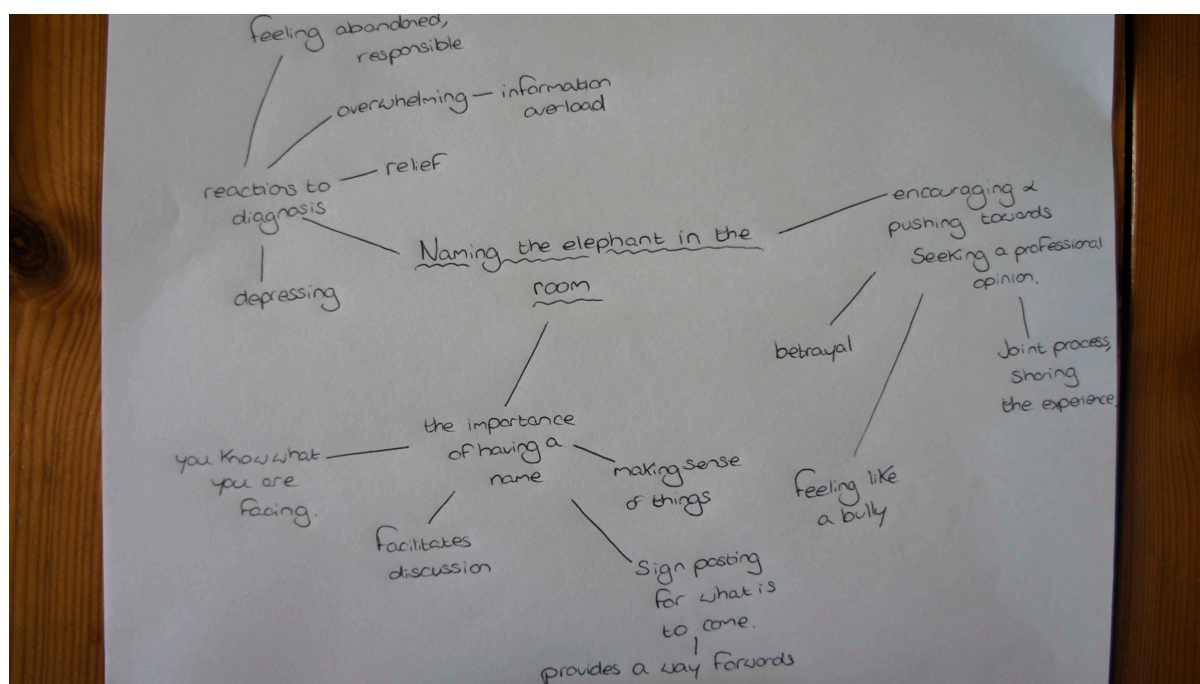 feeling abandoned,
responsible
overwhelming — information
overload
relief
reactions to
diagnosis
depressing
Naming the elephant in the
room
encouraging &
pushing towards
Seeking a professional
opinion.
betrayal
Joint process,
sharing
the experience
feeling like
a bully
the importance
of having a
name
you know what
you are
facing.
facilitates
discussion
making sense
of things
Sign posting
for what is
to come.
provides a way forwards